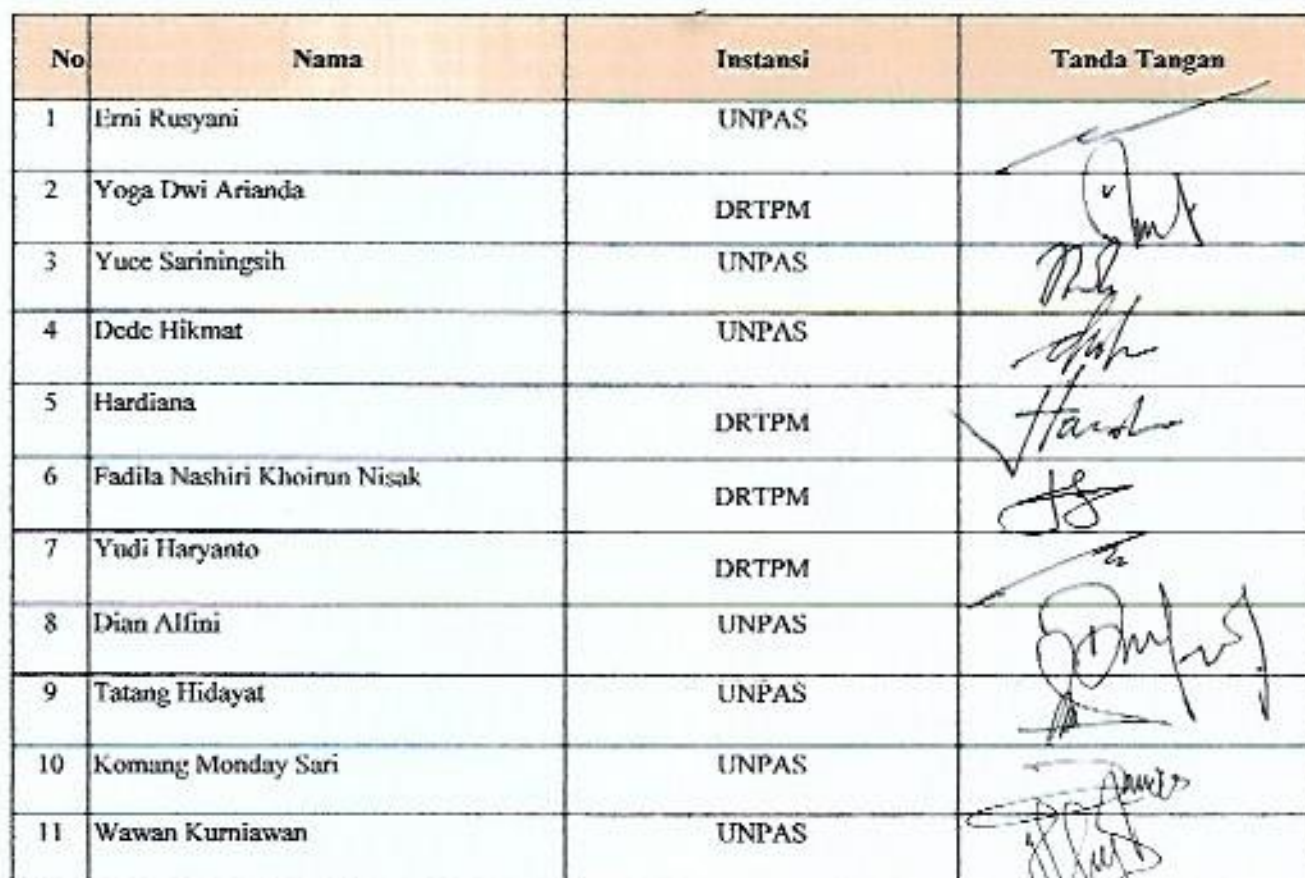 No Nama Instansi Tanda Tangan
1 Erni Rusyani UNPAS
2 Yoga Dwi Arianda DRTPM
3 Yuce Sariningsih UNPAS
4 Dede Hikmat UNPAS
5 Hardiana DRTPM
6 Fadila Nashiri Khoirun Nisak DRTPM
7 Yudi Haryanto DRTPM
8 Dian Alfini UNPAS
9 Tatang Hidayat UNPAS
10 Komang Monday Sari UNPAS
11 Wawan Kurniawan UNPAS